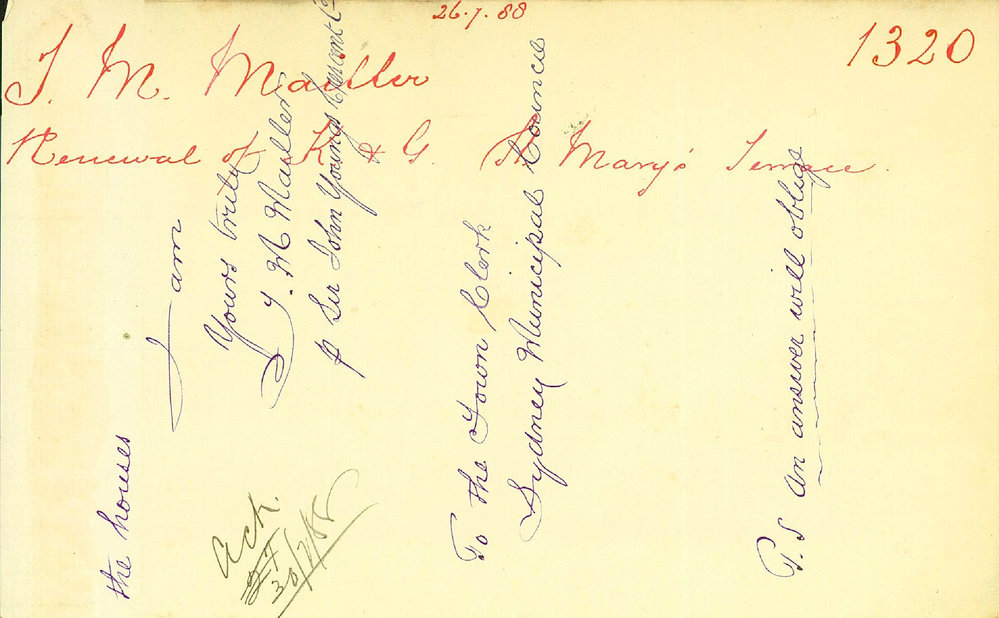 26.7.88
1320
T. M. Mailler
Renewal of K & G St Mary's Terrace.
the houses
I am
Yours truly
T. M Mailler
p Sir John Youngs
To the Town Clerk
Sydney Municipal Council
P.S An answer will oblige
Ack.
27
30/7/88